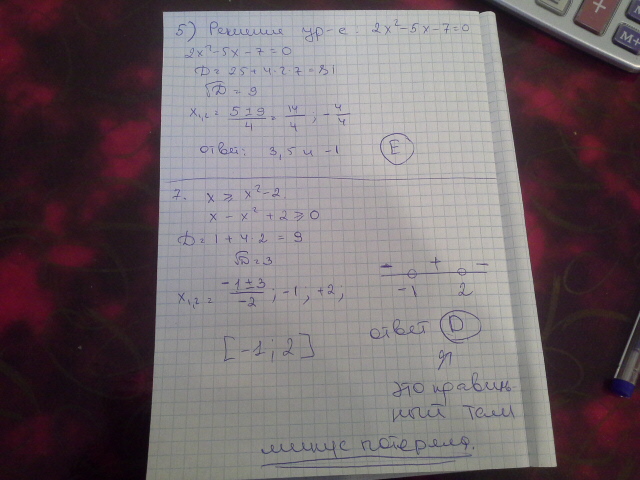 5) Решение ур-е: 2x²-5x-7=0
2x²-5x-7=0
D=25+4·2·7=81
√D=9
x₁,₂=(5±9)/4=14/4; -4/4
ответ: 3,5 и -1 Ⓔ
7. x⩾x²-2
x-x²+2⩾0
D=1+4·2=9
√D=3
x₁,₂=(-1±3)/-2; -1; +2;
- + -
-1 2
[-1;2]
ответ Ⓓ
это правиль
ный там
минус потеряла.
+
M+